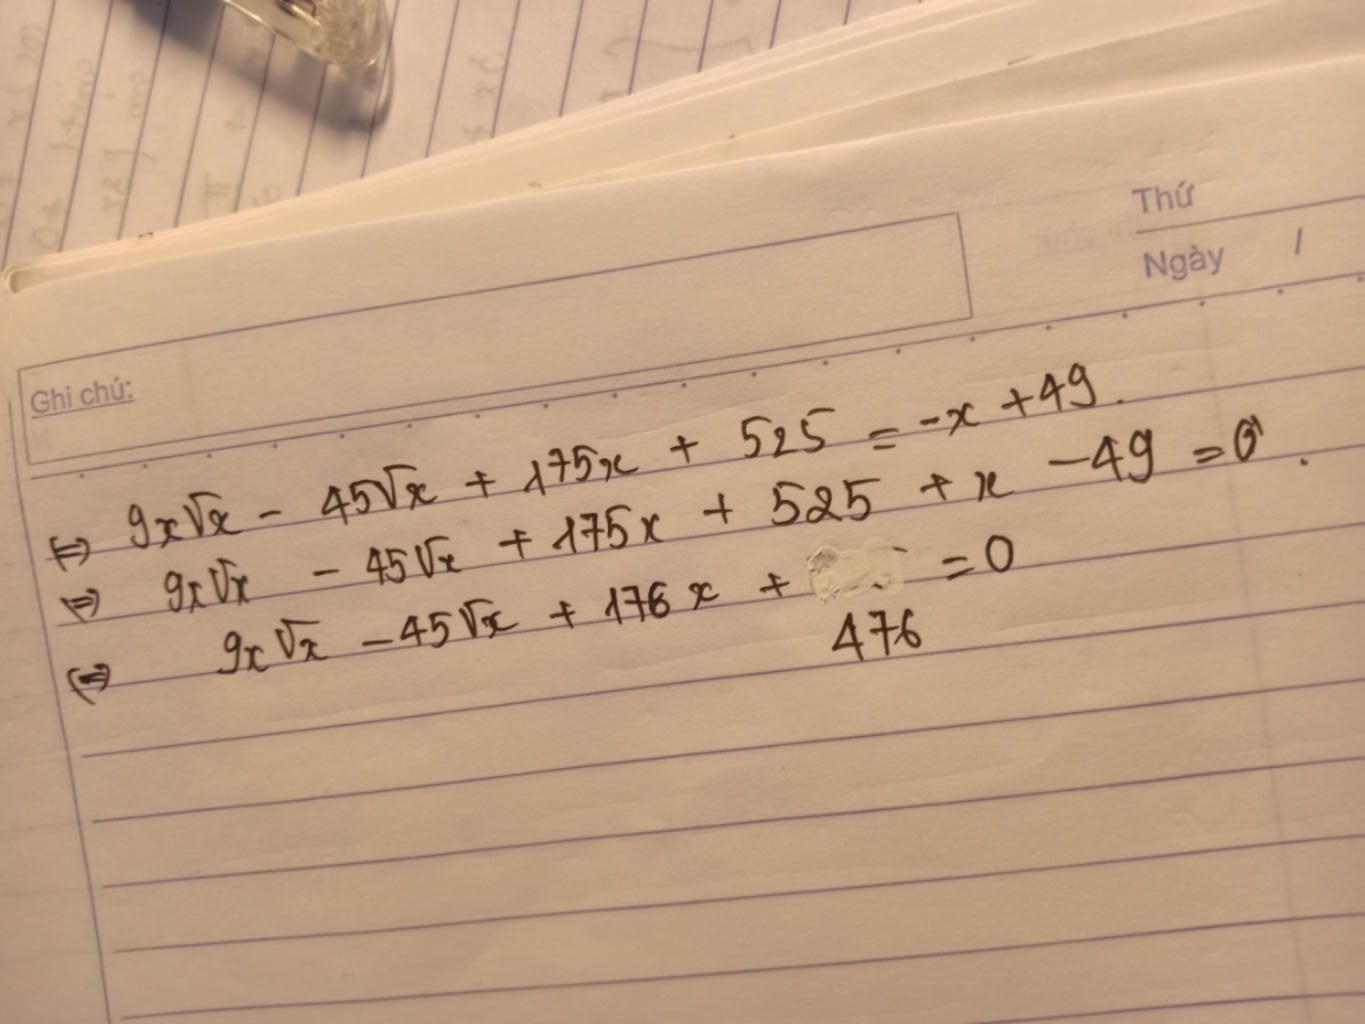 Thứ
Ngày /
Ghi chú:
⇔ 9x√x - 45√x + 175x + 525 = -x + 49.
⇔ 9x√x - 45√x + 175x + 525 + x - 49 = 0.
⇔ 9x√x - 45√x + 176x + = 0
476